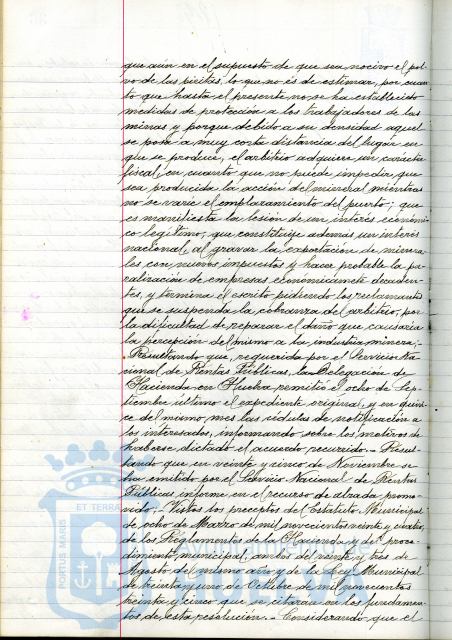 que aún en el supuesto de que sea nocivo el pol-
vo de las piritas, lo que no es de estimar, por cuan-
to que hasta el presente no se ha establecido
medidas de protección a los trabajadores de las
minas y porque debido a su densidad aquel
se posa a muy corta distancia del lugar en
que se produce, el arbitrio adquiere un carácter
fiscal, en cuanto que no puede impedir que
sea producida la acción del mineral mientras
no se varíe el emplazamiento del puerto; que
es manifiesta la lesión de un interés económi-
co legítimo, que constituye además un interés
nacional, al gravar la exportación de minera-
les con nuevos impuestos y hacer probable la pa-
ralización de empresas económicamente decaden-
tes, y termina el escrito pidiendo los reclamantes
que se suspenda la cobranza del arbitrio, por
la dificultad de reparar el daño que causaría
la percepción del mismo a la industria minera;-
Resultando que, requerida por el Servicio Na-
cional de Rentas Públicas, la Delegación de
Hacienda en Huelva remitió el ocho de Sep-
tiembre último el expediente original, y en quin-
ce del mismo mes las cédulas de notificación a
los interesados, informando sobre los motivos de
haberse dictado el acuerdo recurrido.- Resul-
tando que en veinte y cinco de Noviembre se
ha emitido por el Servicio Nacional de Rentas
Públicas informe en el recurso de alzada promo-
vido.- Vistos los preceptos del Estatuto Municipal
de ocho de Marzo de mil novecientos veinte y cuatro,
de los Reglamentos de la Hacienda y del proce-
dimiento municipal, ambos de veinte y tres de
Agosto del mismo año y de la Ley Municipal
de treinta y uno de Octubre de mil novecientos
treinta y cinco que se citarán en los fundamen-
tos de esta resolución.- Considerando que el
ET TERRA
PORTUS MARIS